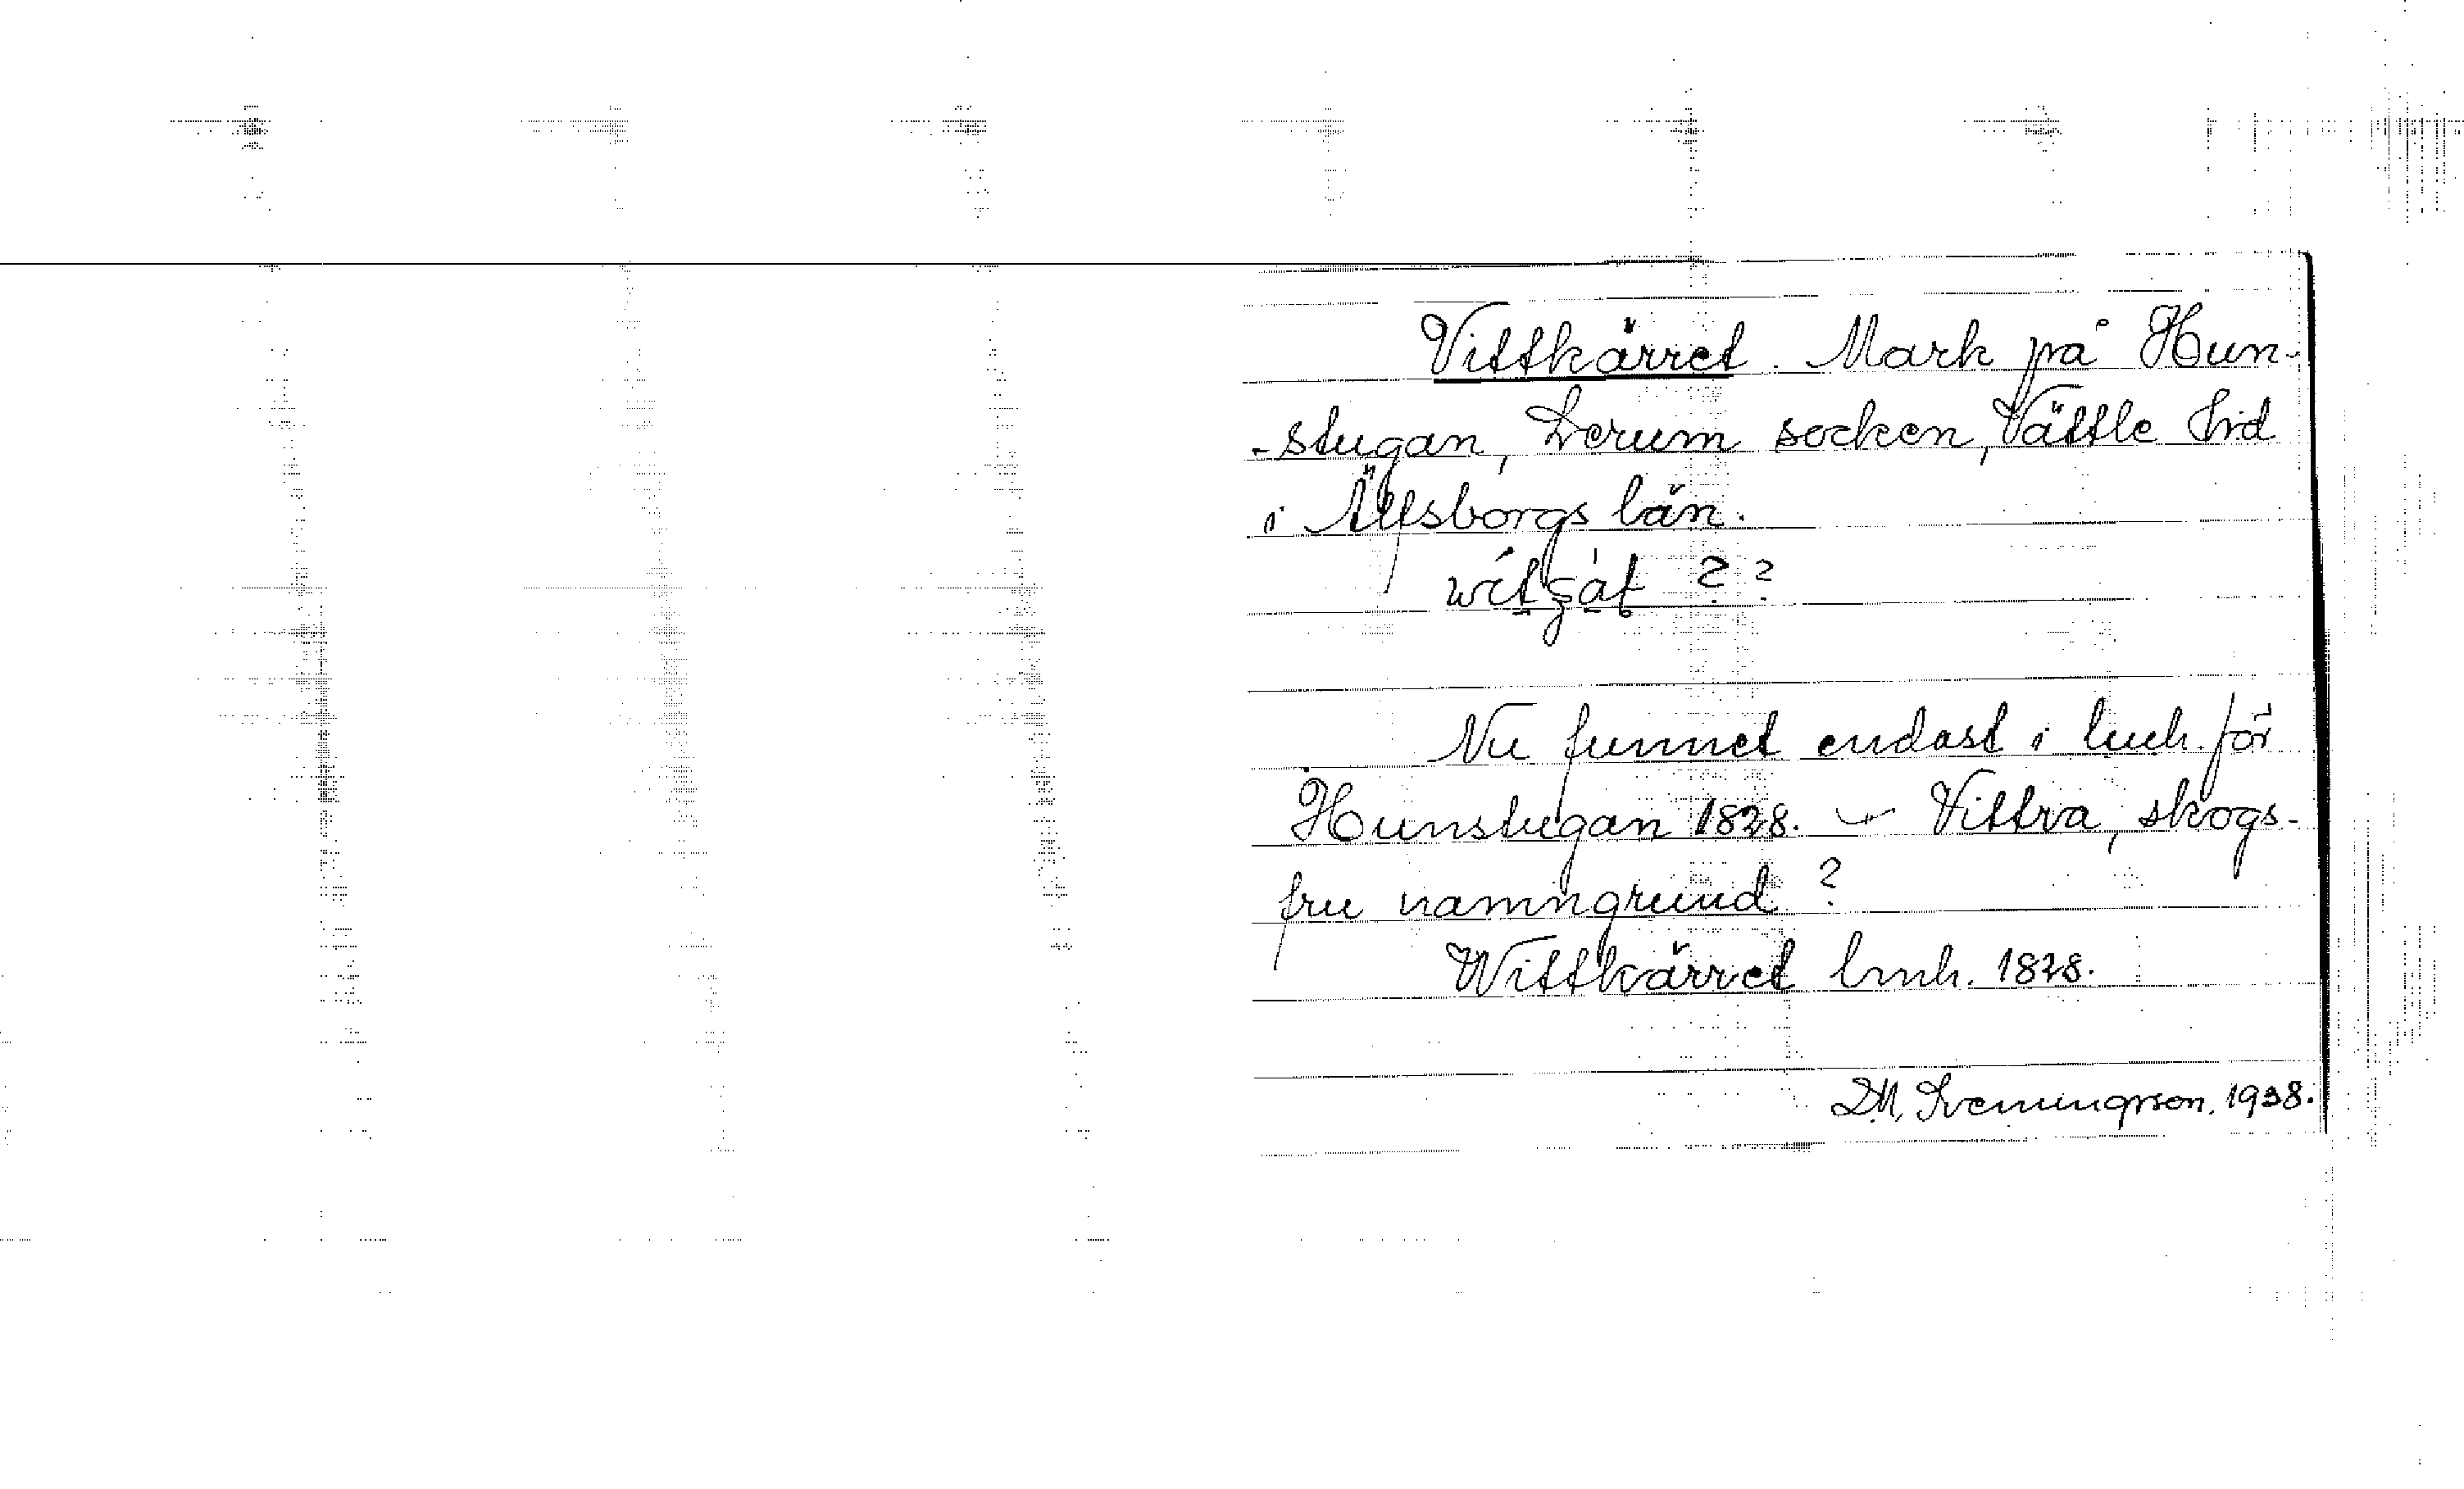 Vittkärret. Mark på Hun-
-stugan, Lerum socken, Vättle hrd
i Älfsborgs län.
Nu funnet endast i lmh. för
Hunstugan 1828. – Vittra, skogs-
fru namngrund?
Wittkärret lmh. 1828.
D.M. Svenningson. 1938.